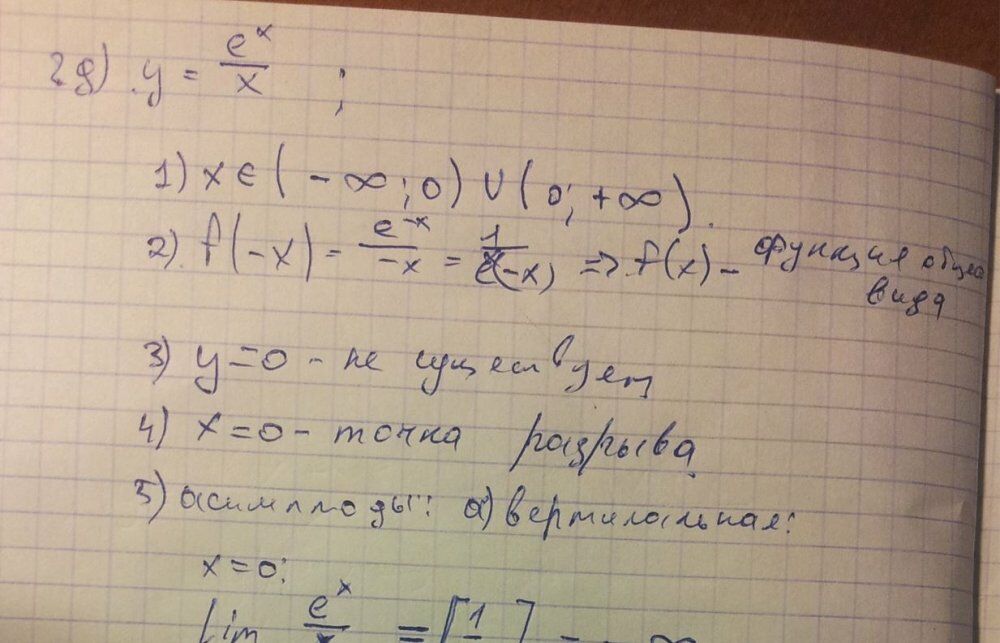 2д) y = e^x / x ;
1) x ∈ (-∞; 0) ∪ (0; +∞).
2) f(-x) = e^-x / -x = 1 / e^x(-x) => f(x) - функция общего
вида
3) y = 0 - не существует
4) x = 0 - точка разрыва.
5) асимптоды: а) вертикальная:
x = 0:
lim e^x / x = [1